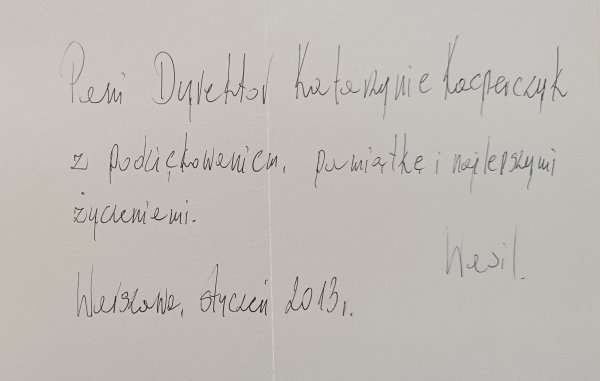 Pani Dyrektor Katarzynie Kacperczyk
z podziękowaniem, pamiątkę i najlepszymi
życzeniami.
Wasil.
Warszawa, styczeń 2013r.